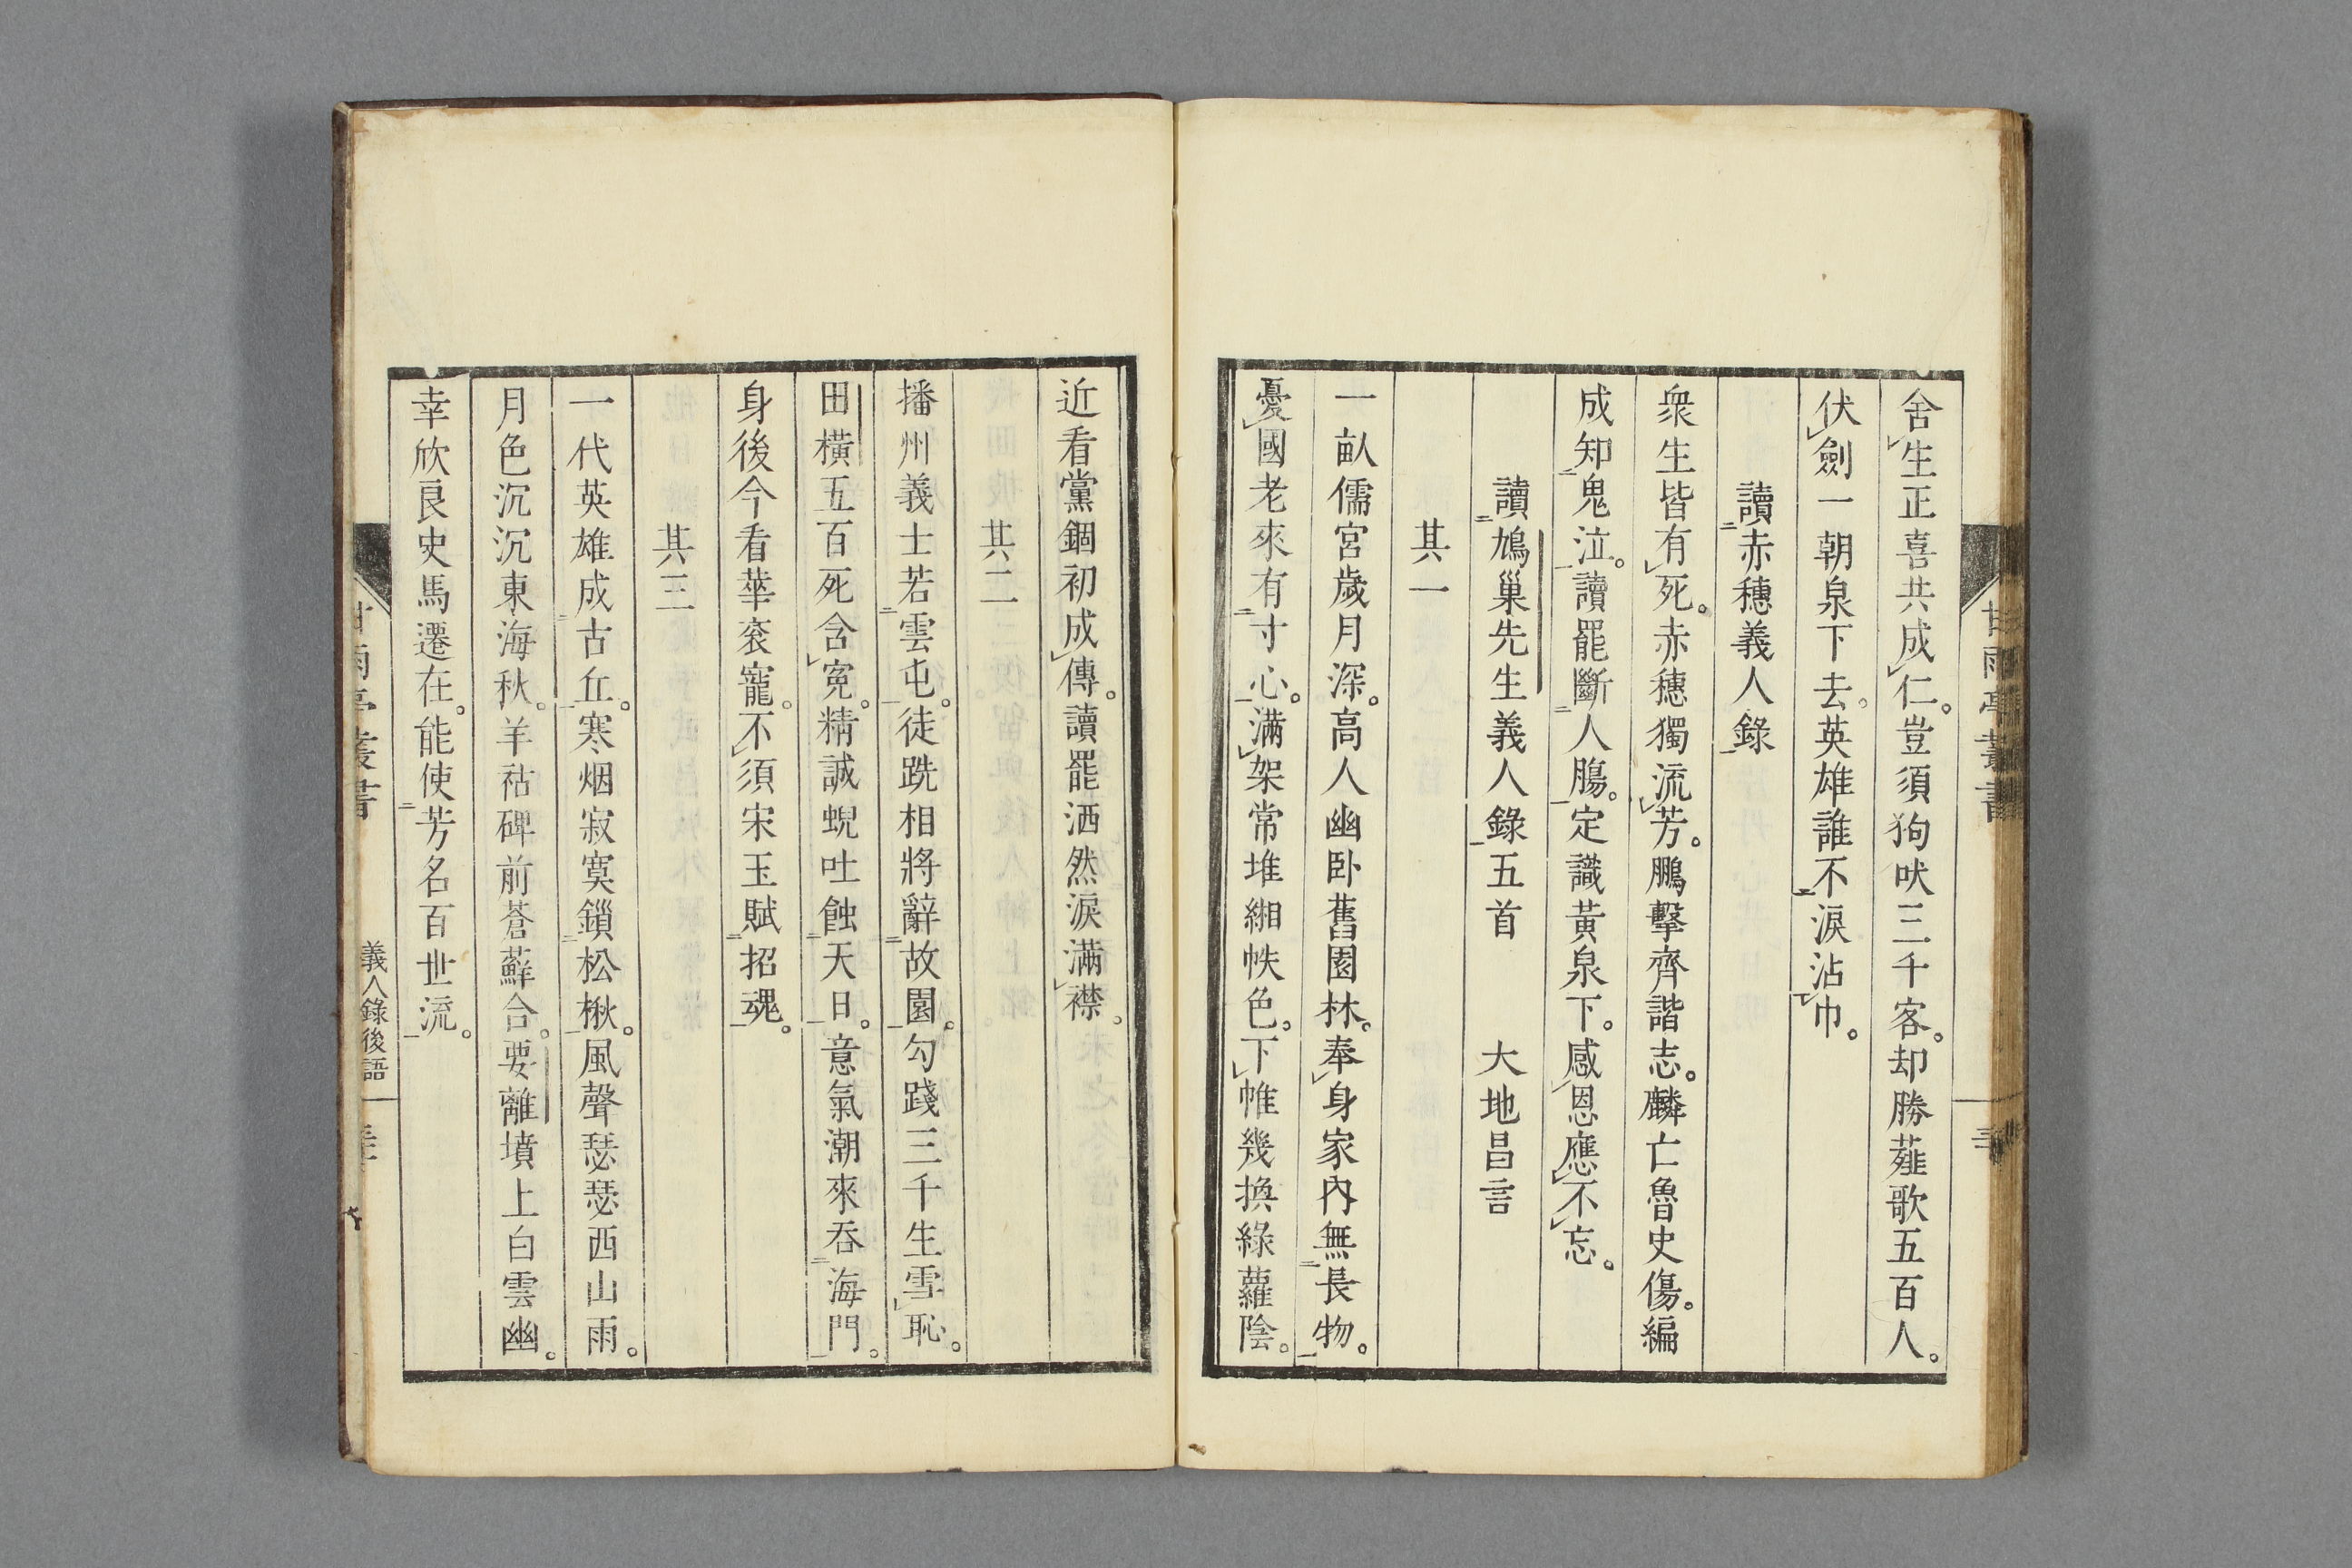 舍生正喜共成仁。豈須狗吠三千客。却勝薤歌五百人。
伏劍一朝泉下去。英雄誰不淚沾巾。
讀赤穗義人錄
衆生皆有死。赤穗獨流芳。鵬擊齊諧志。麟亡魯史傷。編
成知鬼泣。讀罷斷人膓。定識黃泉下。感恩應不忘。
讀鳩巢先生義人錄五首　大地昌言
其一
一畝儒宮歲月深。高人幽卧舊園林。奉身家內無長物。
憂國老來有寸心。滿架常堆緗帙色。下帷幾換綠蘿陰。
近看黨錮初成傳。讀罷洒然淚滿襟。
其二
播州義士若雲屯。徒跣相將辭故園。勾踐三千生雪恥。
田橫五百死含冤。精誠蜺吐蝕天日。意氣潮來吞海門。
身後今看華袞寵。不須宋玉賦招魂。
其三
一代英雄成古丘。寒烟寂寞鎖松楸。風聲瑟瑟西山雨。
月色沉沉東海秋。羊祜碑前蒼蘚合。要離墳上白雲幽。
幸欣良史馬遷在。能使芳名百世流。
甘雨亭叢書
義人錄後語